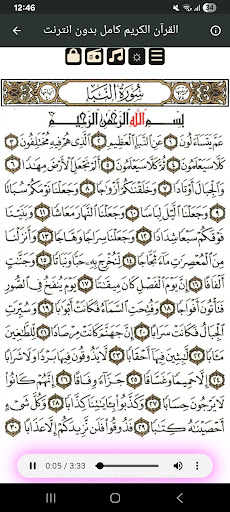 12:46
34
القرآن الكريم كامل بدون انترنت
سُورَةُ النَّبَإِ
بِسْمِ اللَّهِ الرَّحْمَٰنِ الرَّحِيمِ
عَمَّ يَتَسَآءَلُونَ ١ عَنِ ٱلنَّبَإِ ٱلْعَظِيمِ ٢ ٱلَّذِى هُمْ فِيهِ مُخْتَلِفُونَ ٣
كَلَّا سَيَعْلَمُونَ ٤ ثُمَّ كَلَّا سَيَعْلَمُونَ ٥ أَلَمْ نَجْعَلِ ٱلْأَرْضَ مِهَٰدًا ٦
وَٱلْجِبَالَ أَوْتَادًا ٧ وَخَلَقْنَٰكُمْ أَزْوَٰجًا ٨ وَجَعَلْنَا نَوْمَكُمْ سُبَاتًا
٩ وَجَعَلْنَا ٱلَّيْلَ لِبَاسًا ١٠ وَجَعَلْنَا ٱلنَّهَارَ مَعَاشًا ١١ وَبَنَيْنَا
فَوْقَكُمْ سَبْعًا شِدَادًا ١٢ وَجَعَلْنَا سِرَاجًا وَهَّاجًا ١٣ وَأَنزَلْنَا
مِنَ ٱلْمُعْصِرَٰتِ مَآءً ثَجَّاجًا ١٤ لِّنُخْرِجَ بِهِۦ حَبًّا وَنَبَاتًا ١٥ وَجَنَّٰتٍ
أَلْفَافًا ١٦ إِنَّ يَوْمَ ٱلْفَصْلِ كَانَ مِيقَٰتًا ١٧ يَوْمَ يُنفَخُ فِى ٱلصُّورِ
فَتَأْتُونَ أَفْوَاجًا ١٨ وَفُتِحَتِ ٱلسَّمَآءُ فَكَانَتْ أَبْوَٰبًا ١٩ وَسُيِّرَتِ
ٱلْجِبَالُ فَكَانَتْ سَرَابًا ٢٠ إِنَّ جَهَنَّمَ كَانَتْ مِرْصَادًا ٢١ لِّلطَّٰغِينَ
مَـَٔابًا ٢٢ لَّٰبِثِينَ فِيهَآ أَحْقَابًا ٢٣ لَّا يَذُوقُونَ فِيهَا بَرْدًا وَلَا شَرَابًا
٢٤ إِلَّا حَمِيمًا وَغَسَّاقًا ٢٥ جَزَآءً وِفَاقًا ٢٦ إِنَّهُمْ كَانُوا۟
لَا يَرْجُونَ حِسَابًا ٢٧ وَكَذَّبُوا۟ بِـَٔايَٰتِنَا كِذَّابًا ٢٨ وَكُلَّ شَىْءٍ
أَحْصَيْنَٰهُ كِتَٰبًا ٢٩ فَذُوقُوا۟ فَلَن نَّزِيدَكُمْ إِلَّا عَذَابًا ٣٠
0:05 / 3:33